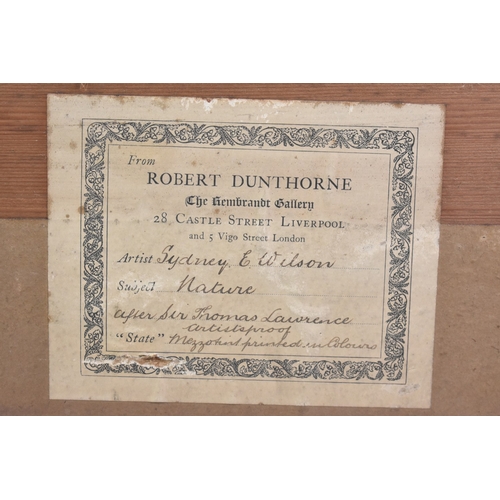 From
ROBERT DUNTHORNE
The Rembrandt Gallery
28 CASTLE STREET LIVERPOOL
and 5 Vigo Street London
Artist Sydney E Wilson
Subject Nature
after Sir Thomas Lawrence
artistsproof
"State" Mezzotint printed in Colours